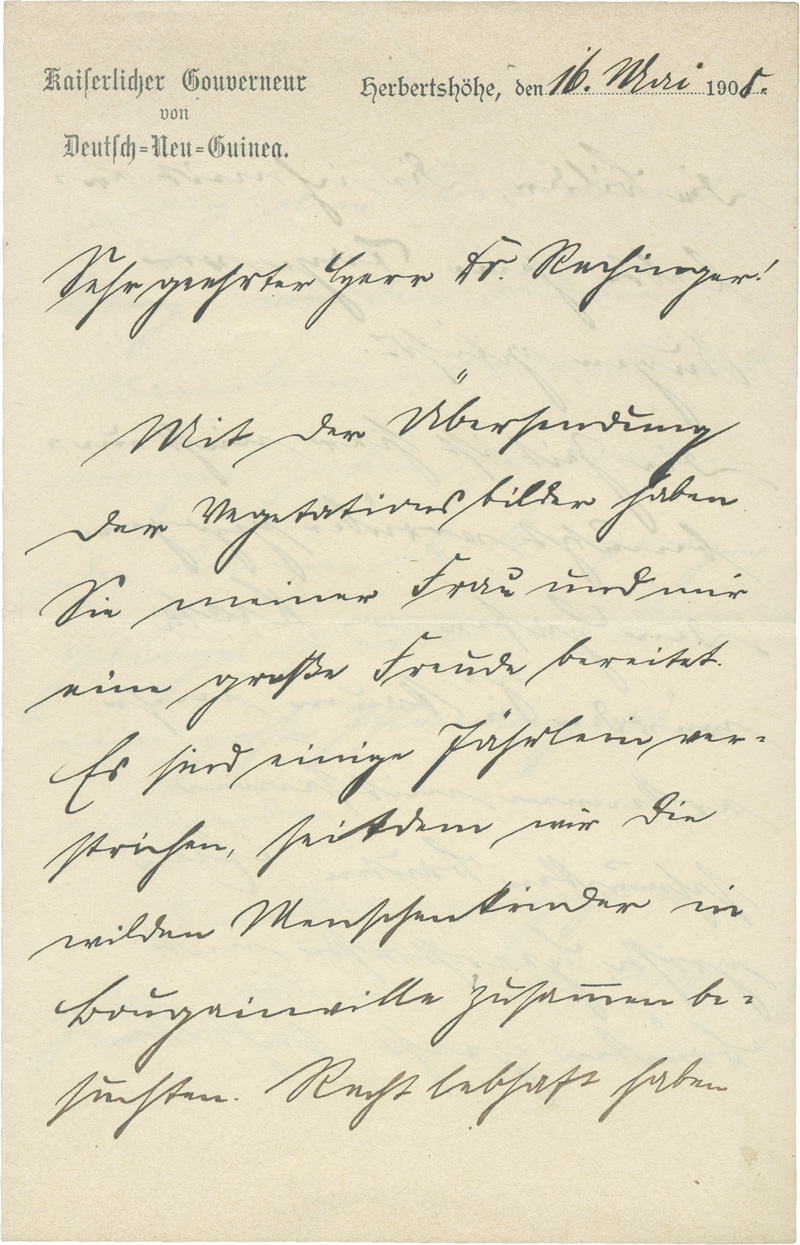 Kaiserlicher Gouverneur
von
Deutsch=Neu=Guinea.
Herbertshöhe, den 16. Mai 1908.
Sehr geehrter Herr Dr. Rechinger!
Mit der Übersendung
der Vegetationsbilder haben
Sie meiner Frau und mir
eine große Freude bereitet.
Es sind einige Jährlein ver-
strichen, seitdem wir die
wilden Menschenkinder in
Bougainville zusam̅en be-
suchten. Recht lebhaft haben